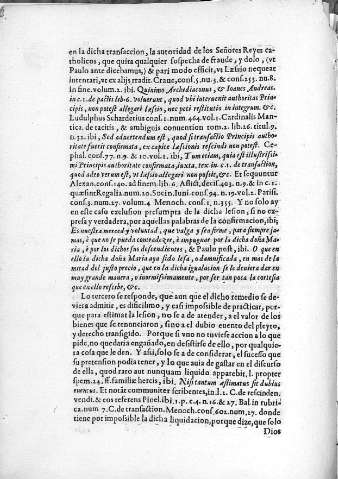 en la dicha transaccion, la autoridad de los Señores Reyes ca-
tholicos, que quita qualquier sospecha de fraude, y dolo, (vt
Paulo ante dicebamus) & pari modo efficit, vt Læsio nequeat
intentari, vt ex alijs tradit. Craue, conf. 5. nu. 5. & conf. 253. nu. 8.
in fine. volum. 2. ibi. Quinimo, Archediaconus, & Ioanes, Andreas,
in c. 1. de pactis lib. 6. voluerunt, quod vbi interuenit authoritas Prin-
cipis, non potest allegari læsio, nec peti restitutio in integrum, &c.
Ludulphus Schardetius conf. 1. num. 464. vol. 1. Cardinalis Man-
tica, de tacitis, & ambiguis conuention. tom. 2. lib. 26. titul. 9.
n. 32. ibi, Sed aduertendum est, quod si transactio Principis autho-
ritate fuerit confirmata, ex capite læsionis rescindi non potest. Ce-
phal. conf. 77. n. 9. & 10. vol. 1. ibi, Tum etiam, quia est illustrissi-
mi Principis authoritate confirmata, iuxta, tex. in c. 1. de transactio,
quod adeo verum est, vt læsio allegari non possit, &c. Et sequuntur
Alexan. conf. 140. ad finem. lib. 6. Aflict. deci. 405. n. 9. & in c. 1.
quæ sint Regalia num. 20. Sotin. Iuni. conf. 94. n. 19. vol. 1. Parisi.
conf. 3. num. 27. volum. 4. Menoch. conf. 1. n. 355. Y no solo ay
en este caso exclusion presumpta de la dicha lesion, sino ex-
pressa, y aparente, por aquellas palabras de la confirmacion, ibi;
Es nuestra merced y voluntad, que valga y sea firme, para siempre ja-
mas, è que no se pueda contradezir, è impugnar por la dicha doña Ma-
ria, è por los dichos sus descendientes, & Paulo post, ibi, O que en
ello la dicha doña Maria aya sido lesa, o damnificada, en mas de la
metad del justo precio, que en la dicha igualacion se le deuiera dar en
muy grande manera, è inormissimamente, por ser tan poca la cortesia
que en ello rescibe, &c.
Lo tercero se responde, que aun que el dicho remedio se de-
viera admitir, es dificilimo, y casi impossible de practicar, por-
que para estimar la lesion, no se a de atender, a el valor de los
bienes que se renunciaron, sino a el dubio euento del pleyto,
y derecho transigido. Porque si vno no tuviesse accion a lo que
pide, no quedaria engañado, en desistirse de ello, por qualquie-
ra cosa que le den. Y assi, solo se a de considerar, el sucesso que
su pretension podia tener, y lo que auia de gastar en el discurso
de ella, quod raro aut nunquam liquido apparebit, l. propter
spem. 24. ff. familiæ hercis, ibi, Nisi tantum æstimatus sit dubius
euentus. Et notat communiter scribentes, in l. 2. C. de rescinden.
vendit. & eos referens Pinel. ibi. 1. p. c. 4. n. 16. & 27. Bal. in rubri-
ca. num 7. C. de transaction. Menoch. conf. 602. num 27. donde
tiene por impossible la dicha liquidacion, porque dize, que solo
Dios